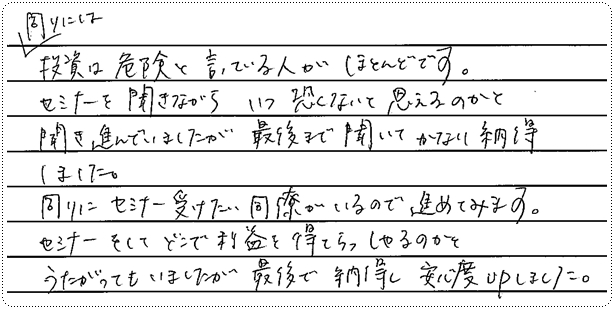 周りには
投資は危険と言っている人がほとんどです。
セミナーを聞きながら いつ恐くないと思えるのかと
聞き進んでいましたが 最後まで聞いて かなり納得
しました。
周りに セミナー受けたい同僚がいるので 進めてみます。
セミナーをして どこで利益を得てらっしゃるのかと
うたがってもいましたが 最後で 納得し 安心度upしました。